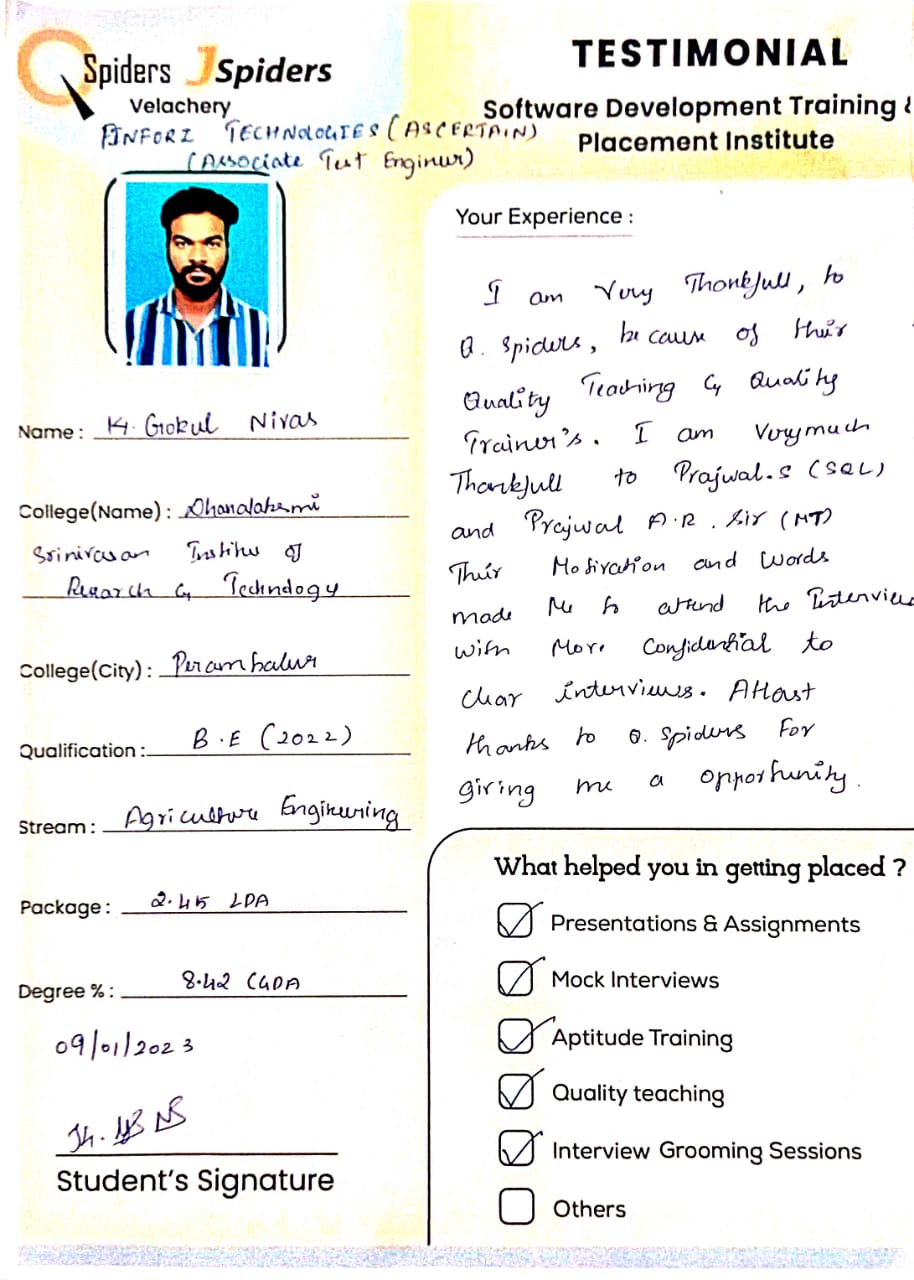 QSpiders JSpiders
Velachery
TECHNOLOGIES (ASCERTAIN)
(Associate Test Engineer)
TESTIMONIAL
Software Development Training &
Placement Institute
Name : K. Gokul Nivas
College(Name) : Dhanalakshmi
Srinivasan Institute of
Research & Technology
College(City) : Perambalur
Qualification : B.E (2022)
Stream : Agriculture Engineering
Package : 2.45 LPA
Degree % : 8.42 CGPA
09/01/2023
Student's Signature
Your Experience :
I am Very Thankfull, to
Q. Spiders, because of their
Quality Teaching & Quality
Trainer's. I am Verymuch
Thankfull to Prajwal.S (SQL)
and Prajwal A.R. Sir (MT)
Their Motivation and Words
made Me to attend the Interview
with More Confidential to
clear interviews. Atleast
thanks to Q. Spiders For
giving me a opportunity.
What helped you in getting placed ?
Presentations & Assignments
Mock Interviews
Aptitude Training
Quality teaching
Interview Grooming Sessions
Others